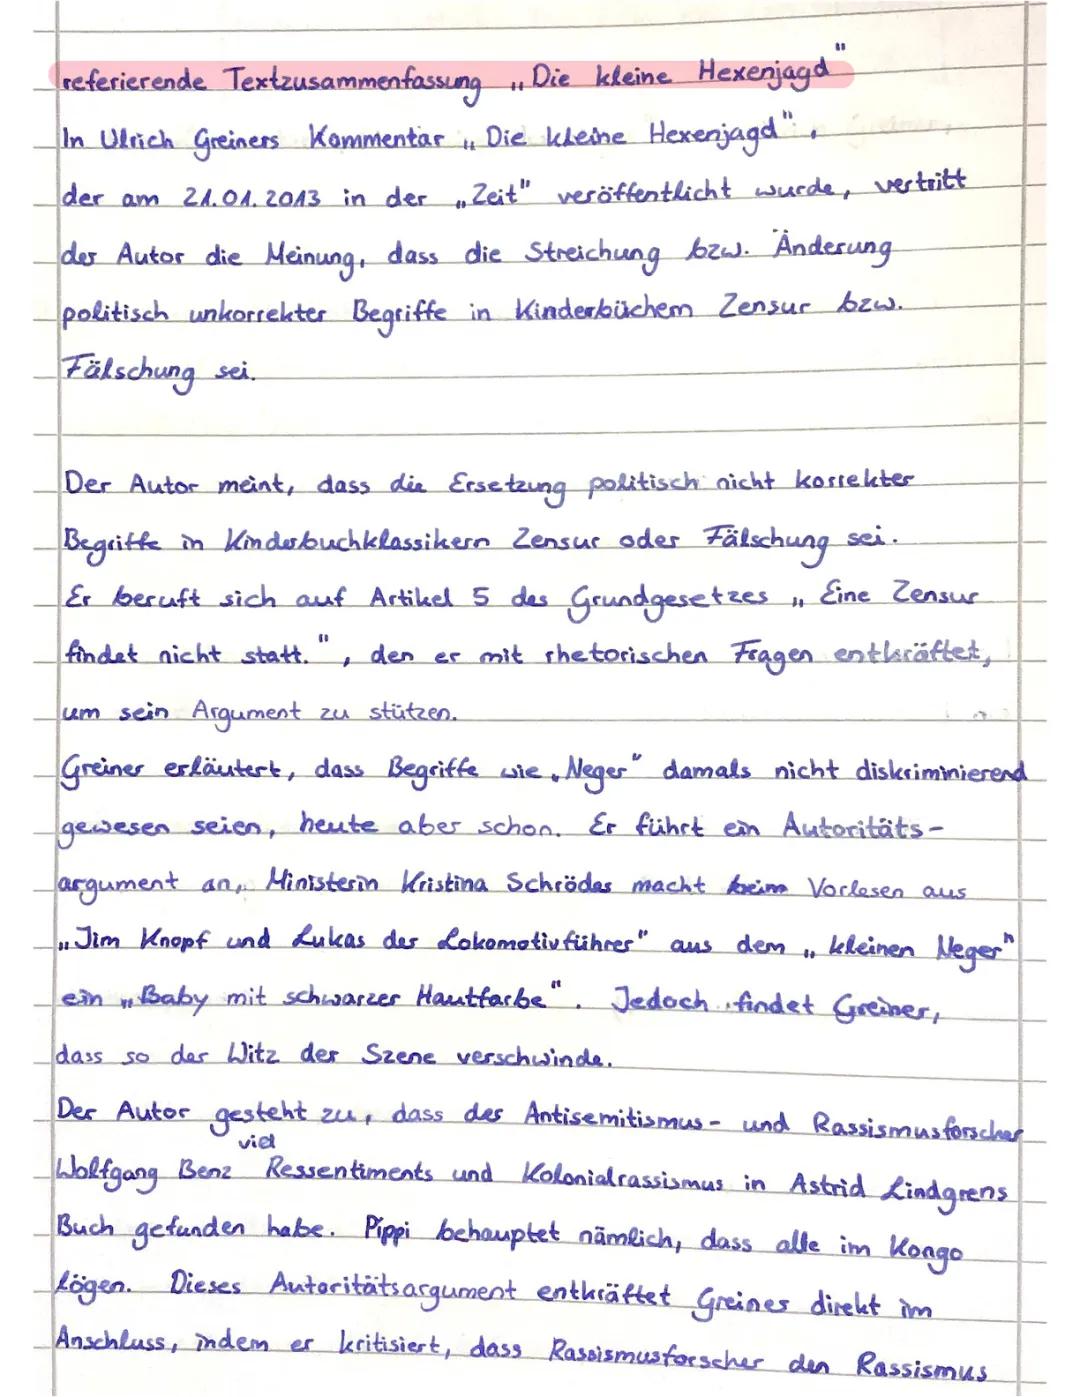 referierende Textzusammenfassung „Die kleine Hexenjagd"
In Ulrich Greiners Kommentar „Die kleine Hexenjagd",
der am 21.01.2013 in der „Zeit" veröffentlicht wurde, vertritt
der Autor die Meinung, dass die Streichung bzw. Änderung
politisch unkorrekter Begriffe in Kinderbüchern Zensur bzw.
Fälschung sei.
Der Autor meint, dass die Ersetzung politisch nicht korrekter
Begriffe in Kinderbuchklassikern Zensur oder Fälschung sei.
Er beruft sich auf Artikel 5 des Grundgesetzes „Eine Zensur
findet nicht statt.", den er mit rhetorischen Fragen entkräftet,
um sein Argument zu stützen.
Greiner erläutert, dass Begriffe wie „Neger" damals nicht diskriminierend
gewesen seien, heute aber schon. Er führt ein Autoritäts-
argument an, Ministerin Kristina Schröder macht beim Vorlesen aus
„Jim Knopf und Lukas der Lokomotivführer" aus dem „kleinen Neger"
ein „Baby mit schwarzer Hautfarbe". Jedoch findet Greiner,
dass so der Witz der Szene verschwinde.
Der Autor gesteht zu, dass der Antisemitismus- und Rassismusforscher
Wolfgang Benz viel Ressentiments und Kolonialrassismus in Astrid Lindgrens
Buch gefunden habe. Pippi behauptet nämlich, dass alle im Kongo
lögen. Dieses Autoritätsargument entkräftet Greiner direkt im
Anschluss, indem er kritisiert, dass Rassismusforscher den Rassismus